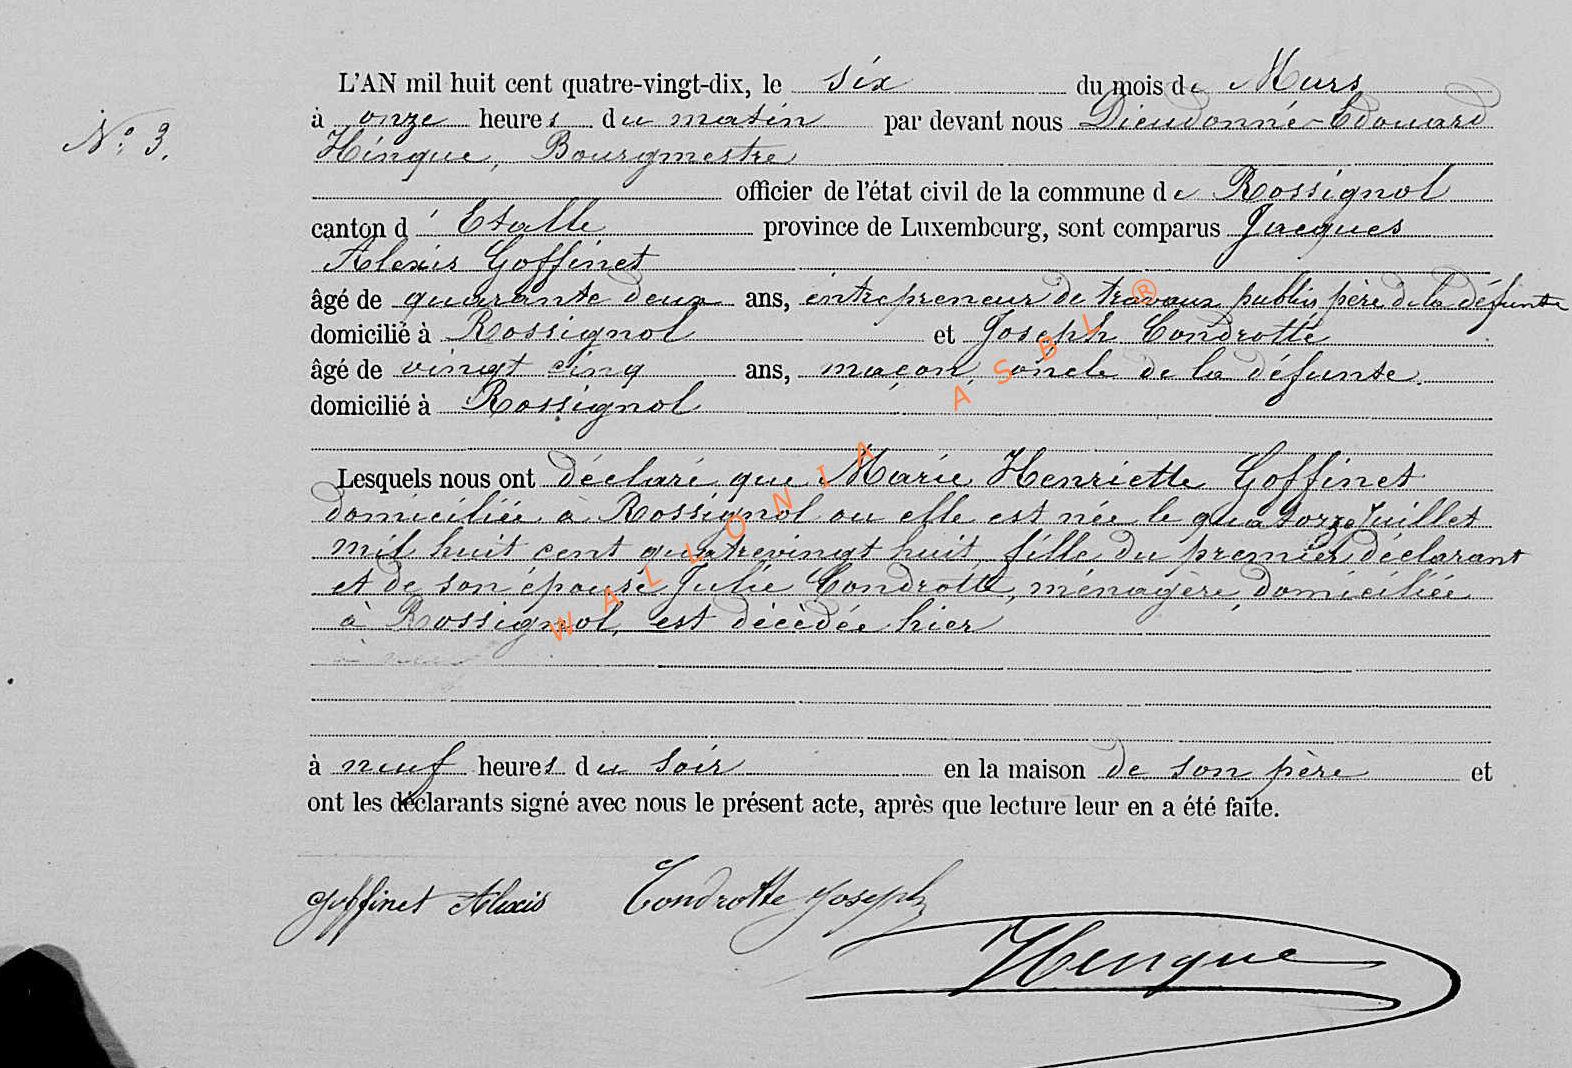 L'AN mil huit cent quatre-vingt-dix, le six du mois de Mars
N° 3.
à onze heures du matin par devant nous Dieudonné-Edouard
Hinque, Bourgmestre
officier de l'état civil de la commune de Rossignol
canton d'Etalle province de Luxembourg, sont comparus Jacques
Alexis Goffinet
âgé de quarante deux ans, entrepreneur de travaux publics père de la défunte
domicilié à Rossignol et Joseph Condrotte
âgé de vingt cinq ans, maçon, oncle de la défunte.
domicilié à Rossignol
Lesquels nous ont déclaré que Marie Henriette Goffinet
domiciliée à Rossignol ou elle est née le quatorze Juillet
mil huit cent quatrevingt huit, fille du premier déclarant
et de son épouse Julie Condrotte, ménagère, domiciliée
à Rossignol, est décédée hier
à neuf heures du soir en la maison de son père et
ont les déclarants signé avec nous le présent acte, après que lecture leur en a été faite.
Goffinet Alexis Condrotte Joseph
Hinque
WALLONIA ASBL ®